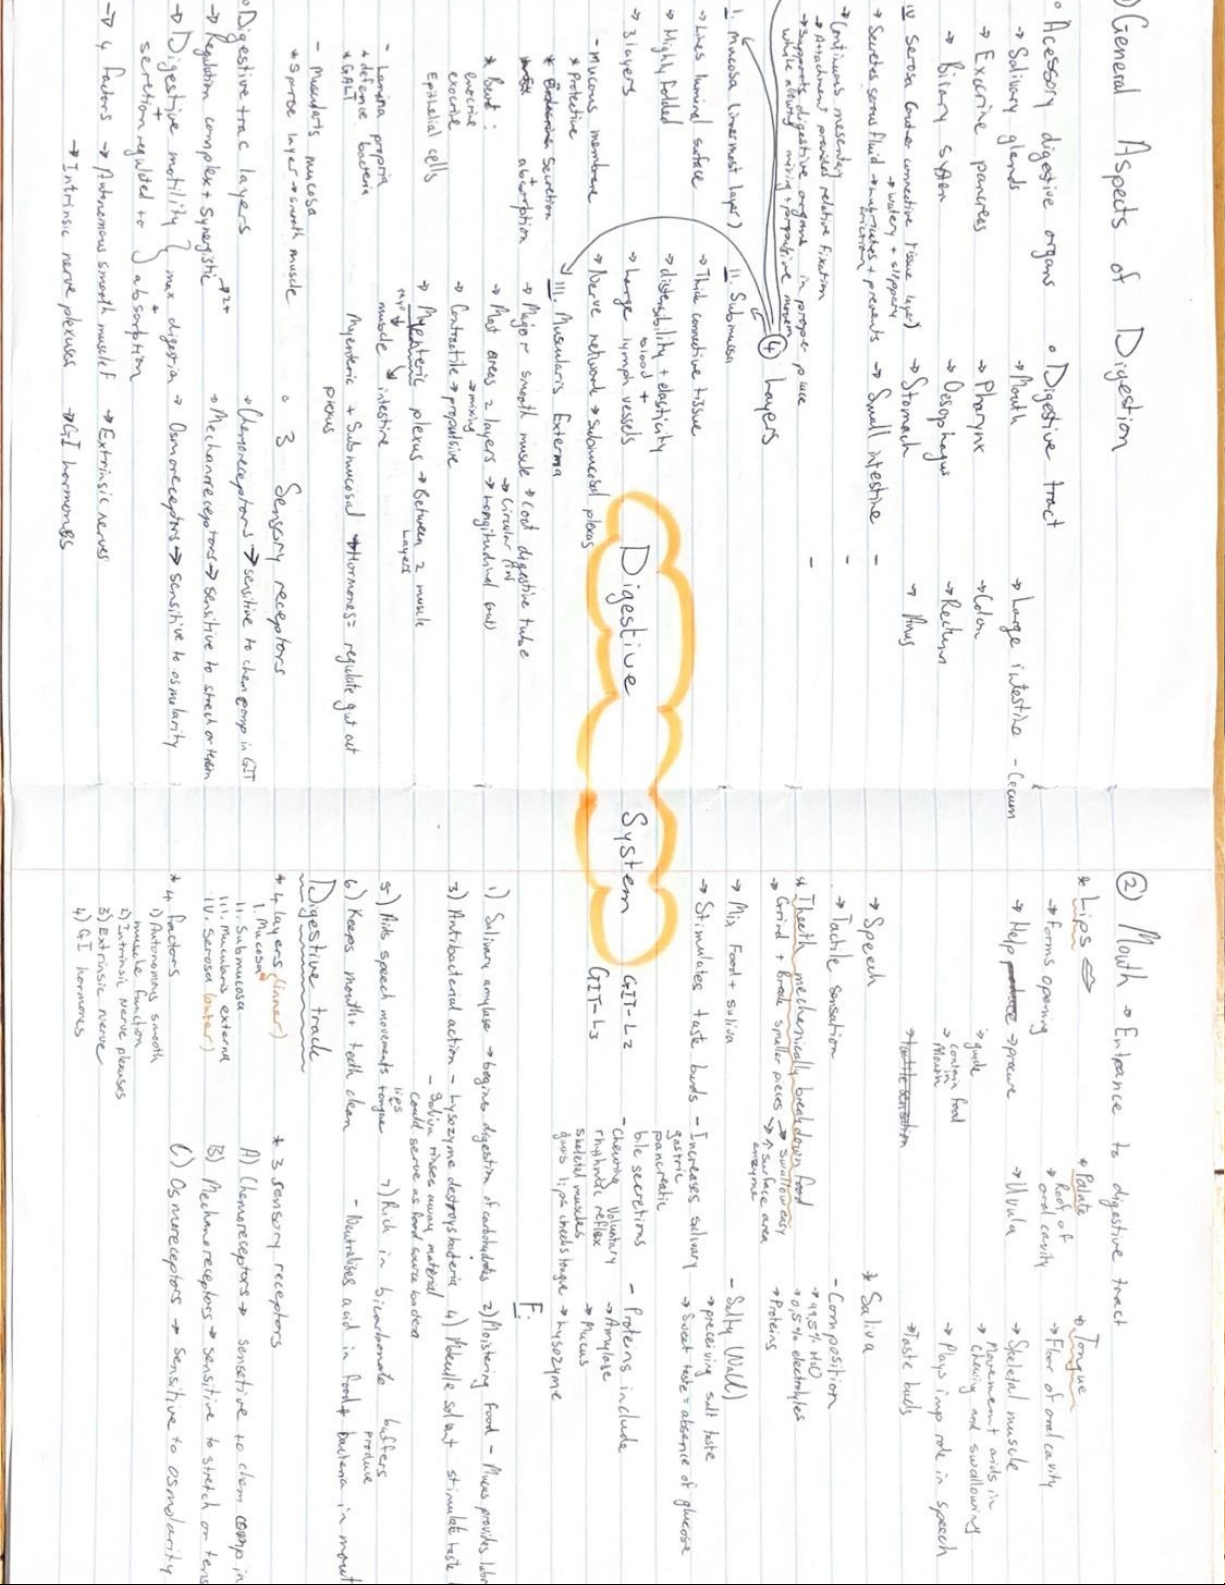 1) General Aspects of Digestion
• Acessory digestive organs
→ Salivary glands
→ Exocrine pancreas
→ Biliary system
• Digestive tract
→ Mouth
→ Pharynx
→ Oesophagus
→ Stomach
→ Small intestine
→ Large intestine - Cecum
→ Colon
→ Rectum
→ Anus
IV Serosa (outer connective tissue layer)
→ Secretes serous fluid → lubricates + prevents friction
→ watery + slippery
→ Continuous mesentary
→ Attachment provides relative fixation
→ Supports digestive organs in proper place
while allowing mixing + propulsive movem
④ Layers
I. Mucosa (innermost layer)
→ Lines luminal surface
→ Highly folded
→ 3 layers
- Mucous membrane
* Protective
* Secretion
absorption
* Cont:
endocrine
exocrine
Epithelial cells
- Lamina propria
* defence bacteria
* GALT
- Muscularis mucosa
* sparse layer → smooth muscle
II. Submucosa
→ Thick connective tissue
→ distensibility + elasticity
→ Large blood + lymph vessels
→ Nerve network → submucosal plexus
III. Muscularis Externa
→ Major smooth muscle → Coat digestive tube
→ Most areas 2 layers → Longitudinal (out)
→ Circular (in)
→ Contractile → propulsive
→ mixing
→ Myenteric plexus → Between 2 muscle layers
muscle intestine
Myenteric + Submucosal → Hormones = regulate gut act
plexus
• Digestive trac layers
→ Regulation complex + Synergistic
→ Digestive motility } max digestion
+ secretion regulated to } + absorption
→ 4 factors → Autonomous smooth muscle f
→ Intrinsic nerve plexuses
→ Extrinsic nerves
→ GI hormones
• 3 Sensory receptors
→ Chemoreceptors → sensitive to chem comp in GIT
→ Mechanoreceptors → sensitive to strech or tension
→ Osmoreceptors → sensitive to osmularity
Digestive System
GIT-L2
GIT-L3
② Mouth → Entrance to digestive tract
* Lips
→ Forms opening
→ Help procure
→ guide
→ contain food in Mouth
→ Speech
→ Tactile sensation
* Palate
→ Roof of oral cavity
→ Uvula
* Tongue
→ Floor of oral cavity
→ Skeletal muscle
→ Movement aids in chewing and swallowing
→ Plays imp role in speech
→ Taste buds
* Teeth mechenically breakdown food
→ Grind + Break smaller pieces → swallow easy
→ ↑ surface area enzyme
→ Mix Food + saliva
→ Stimulates taste buds - Increases salivary
gastric
pancreatic
bile secretions
- Chewing Voluntary
rhythmic reflex
skeletal muscles
jaws lips cheeks tongue
* Saliva
- Composition
→ 99,5% H2O
→ 0,5% electrolytes
→ Proteins
- Salty (NaCl)
→ preceiving salt taste
→ Sweet taste = absence of glucose
- Proteins include
→ Amylase
→ Mucus
→ Lysozyme
F:
1) Salivary amylase → begins digestion of carbohydrates
2) Moistering food - Mucus provides lubr
3) Antibacterial action - Lysozyme destroys bacteria
- Saliva rinses away material
could serve as food source bacteria
4) Molecule solvent stimulate taste
5) Aids speech movements lips tongue
6) Keeps mouth + teeth clean
7) Rich in bicarbonate buffers
- Neutralises acid in food + bacteria produce in mout
Digestive track
* 4 layers
I. Mucosa (inner)
II. Submucosa
III. Muscularis externa
IV. Serosa (outer)
* 4 factors
1) Autonomous smooth muscle function
2) Intrinsic Nerve plexuses
3) Extrinsic nerve
4) GI hormones
* 3 sensory receptors
A) Chemoreceptors → sensetive to chem comp in
B) Mechanoreceptors → sensitive to stretch or tens
C) Osmoreceptors → Sensitive to osmolarity